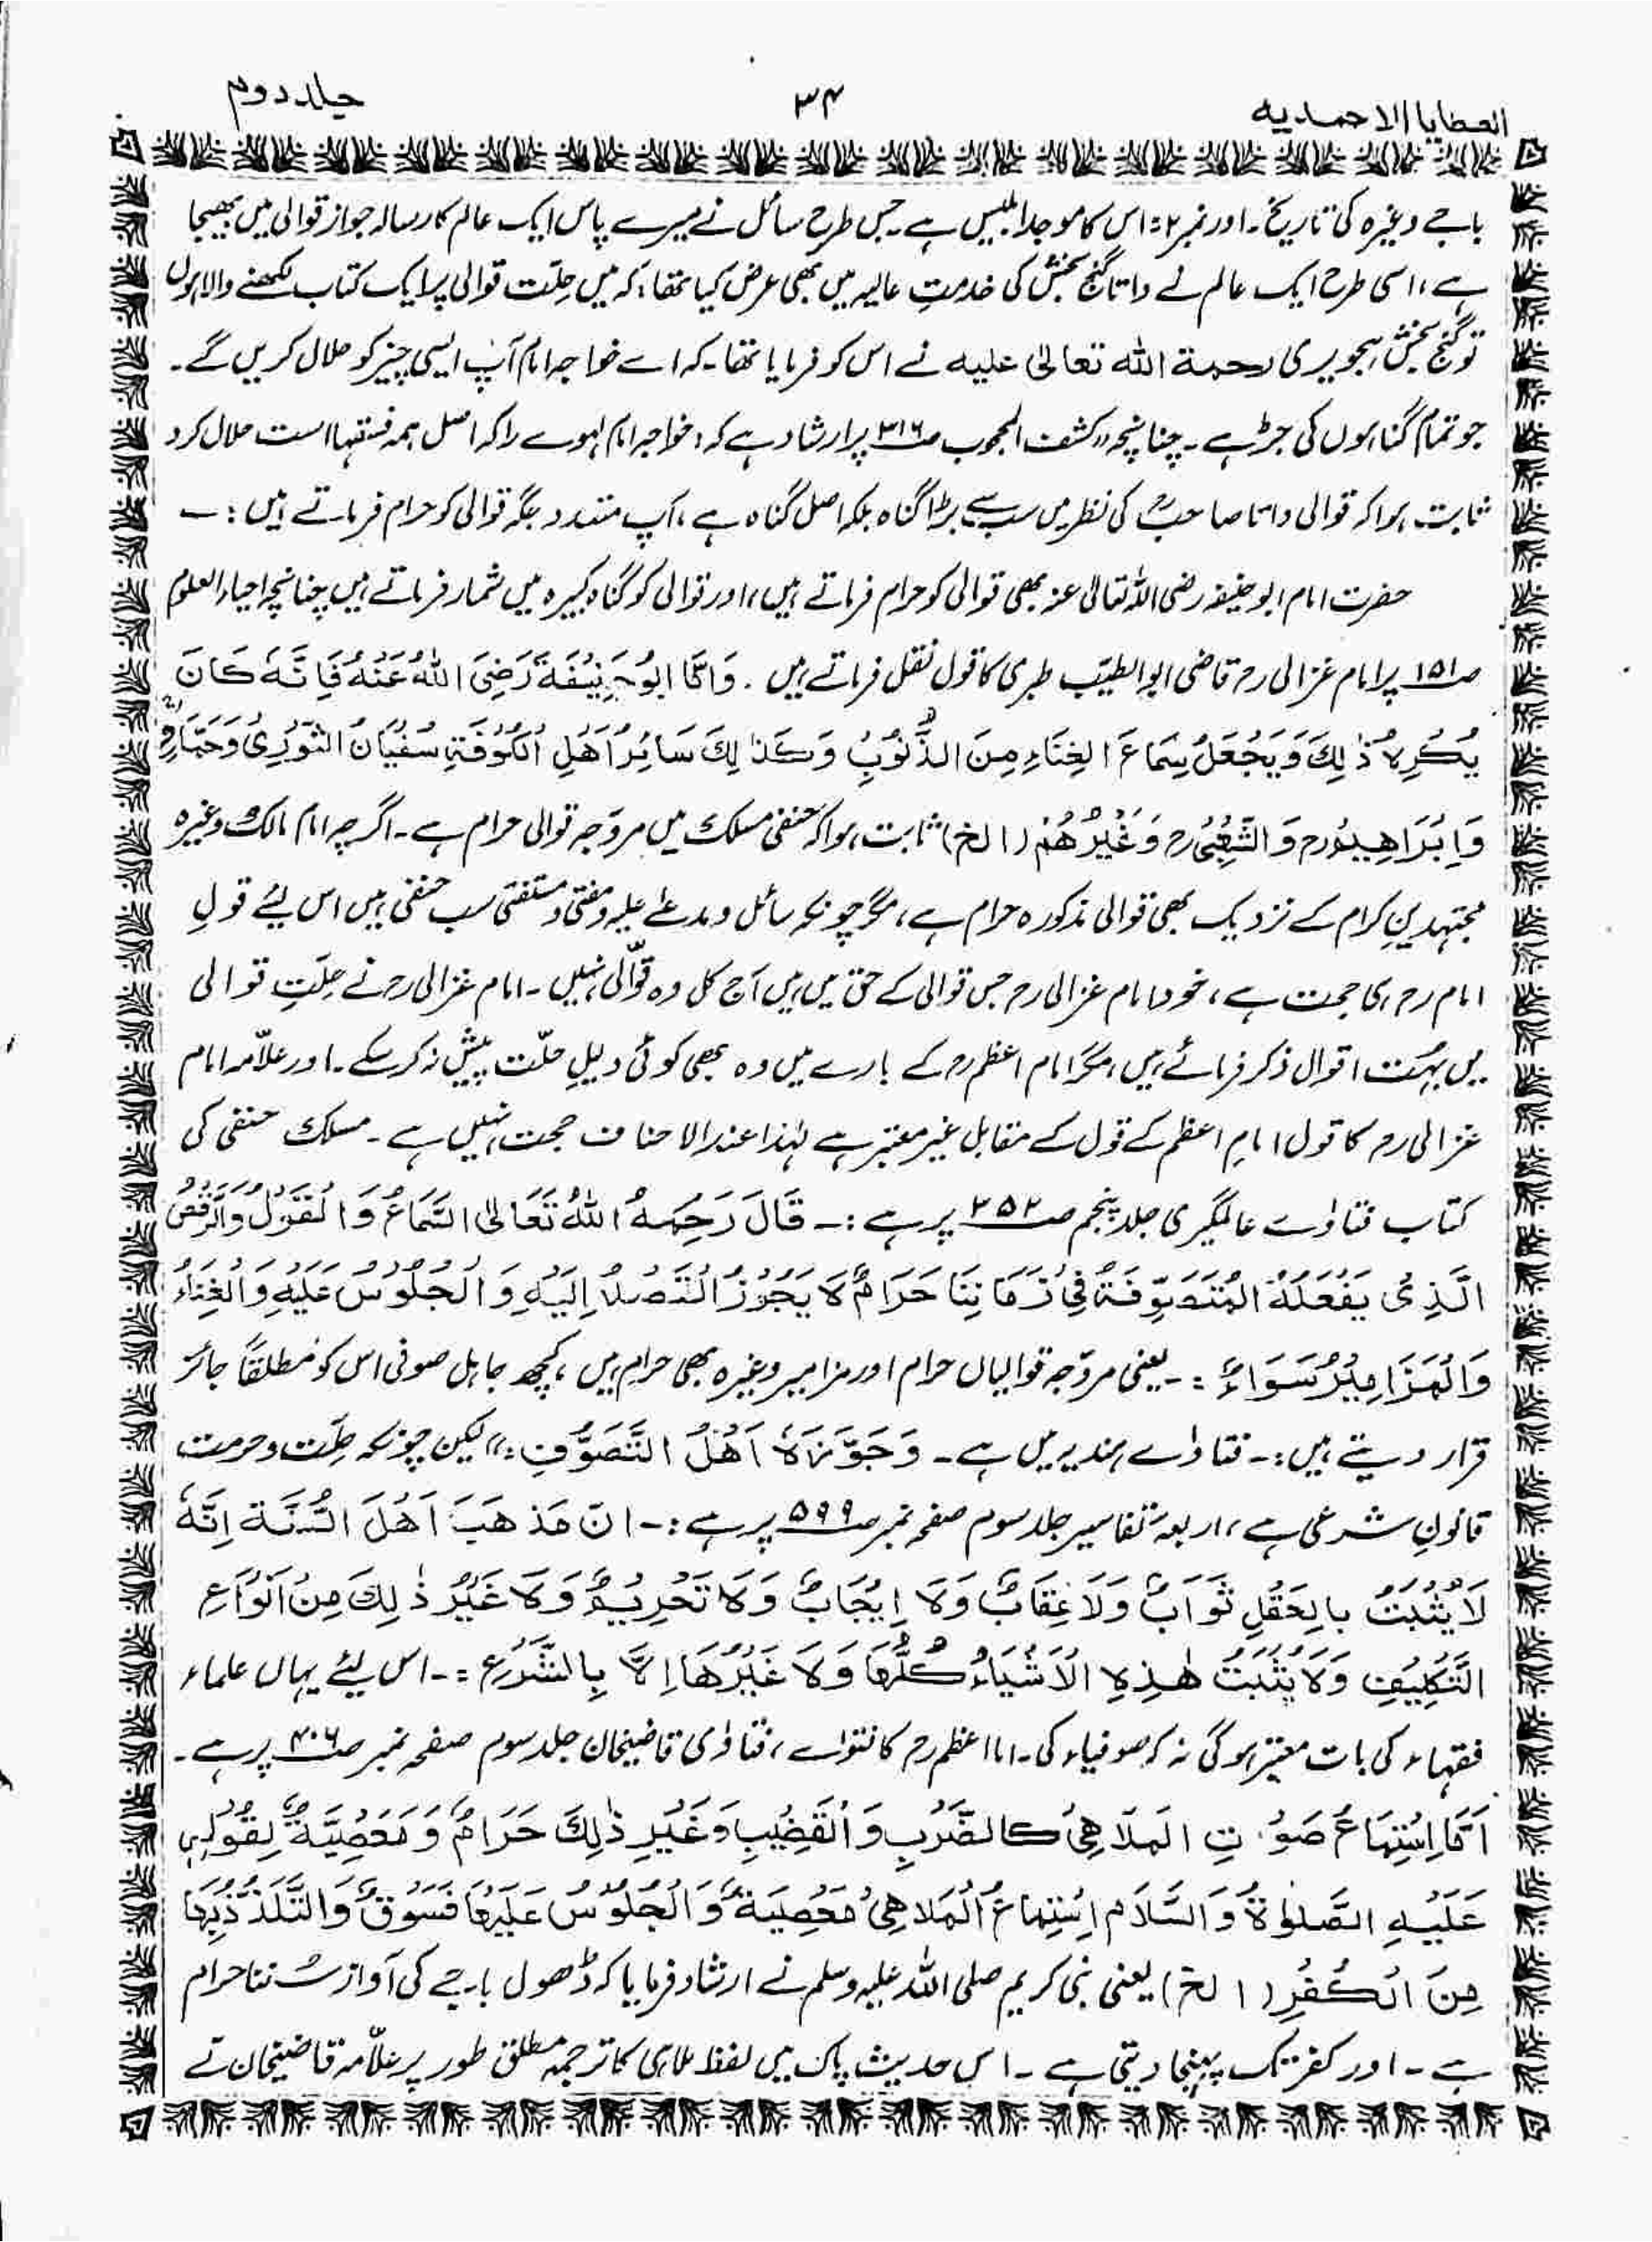 العطایا الاحمدیه ۳۴ جلد دوم
باجے وغیرہ کی تاریخ۔ اور نمبر ۲: اس کا موجد ابلیس ہے۔ جس طرح سائل نے میرے پاس ایک عالم کا رسالہ جواز قوالی میں بھیجا
ہے، اسی طرح ایک عالم نے داتا گنج بخش کی خدمتِ عالیہ میں بھی عرض کیا تھا: کہ میں حِلّت قوالی پر ایک کتاب لکھنے والا ہوں
تو گنج بخش ہجویری رحمة الله تعالیٰ علیه نے اس کو فرمایا تھا۔ کہ اے خواجہ امام آپ ایسی چیز کو حلال کریں گے۔
جو تمام گناہوں کی جڑ ہے۔ چنانچہ، کشف المحجوب صـ۳۱۶ پر ارشاد ہے کہ: خواجہ امام لہوے را کہ اصل ہمہ فسقہا است حلال کرد
ثابت ہوا کہ قوالی داتا صاحبؒ کی نظر میں سب سے بڑا گناہ بلکہ اصل گناہ ہے، آپ متعدد جگہ قوالی کو حرام فرماتے ہیں :۔
حضرت امام ابو حنیفہ رضی اللہ تعالیٰ عنہ بھی قوالی کو حرام فرماتے ہیں، اور قوالی کو گناہ کبیرہ میں شمار فرماتے ہیں چنانچہ احیاء العلوم
صـ۱۵۱ پر امام غزالی رح قاضی ابو الطیّب طبری کا قول نقل فرماتے ہیں۔ وَاَمَّا اَبُوْحَنِيْفَةَ رَضِىَ اللهُ عَنْهُ فَاِنَّهٗ كَانَ
يُكْرِهُ ذٰلِكَ وَيَجْعَلُ سِمَاعَ الغِنَاءِ مِنَ الذُّنُوْبِ وَكَذٰلِكَ سَائِرُ اَهْلِ الْكُوْفَةِ سُفْيَانُ الثَّوْرِىُّ وَحَمَّادٌ
وَاِبْرَاهِيْمُ رح وَالشَّعْبِىُّ رح وَغَيْرُهُمْ (الخ) ثابت ہوا کہ حنفی مسلک میں مروّجہ قوالی حرام ہے۔ اگرچہ امام مالک وغیرہ
مجتہدینِ کرام کے نزدیک بھی قوالی مذکورہ حرام ہے، مگر چونکہ سائل و مدعےٰ علیہ و مفتی و مستفتی سب حنفی ہیں اس لئے قولِ
امام رح ہی حجت ہے، خود امام غزالی رح جس قوالی کے حق میں ہیں آج کل وہ قوّالی نہیں۔ امام غزالی رح نے حِلّتِ قوالی
میں بہت اقوال ذکر فرمائے ہیں، مگر امام اعظم رح کے بارے میں وہ بھی کوئی دلیلِ حلّت پیش نہ کر سکے۔ اور علاّمہ امام
غزالی رح کا قول امامِ اعظم کے قول کے مقابل غیر معتبر ہے لہٰذا عند الاحناف حجت نہیں ہے۔ مسلک حنفی کی
کتاب فتاوٰے عالمگیری جلد پنجم صـ۳۵۲ پر ہے :۔ قَالَ رَحِمَهُ اللهُ تَعَالٰى السَّمَاعُ وَالْقَوْلُ وَالرَّقْصُ
الَّذِىْ يَفْعَلُهٗ الْمُتَصَوِّفَةُ فِىْ زَمَانِنَا حَرَامٌ لَا يَجُوْزُ الْقَصْدُ اِلَيْهِ وَالْجُلُوْسُ عَلَيْهِ وَالْغِنَاءُ
وَالْمَزَامِيْرُ سَوَاءٌ :۔ یعنی مروّجہ قوالیاں حرام اور مزامیر وغیرہ بھی حرام ہیں، کچھ جاہل صوفی اس کو مُطلقاً جائز
قرار دیتے ہیں :۔ فتاوٰے ہندیہ میں ہے۔ وَجَوَّزَهٗ اَهْلُ التَّصَوُّفِ :، لیکن چونکہ حِلّت و حرمت
قانونِ شرعی ہے، اربعۃ تفاسیر جلد سوم صفحہ نمبر صـ۵۹۹ پر ہے :۔ انّ مَذهَبَ اَهْلَ السُّنَّة اِنَّهٗ
لَا يُثْبَتُ بِالعَقْلِ ثَوَابٌ وَلَا عِقَابٌ وَلَا اِيْجَابٌ وَلَا تَحْرِيْمٌ وَلَا غَيْرُ ذٰلِكَ مِنْ اَنْوَاعِ
التَّكْلِيْفِ وَلَا يَثْبُتُ هٰذِهِ الْاَشْيَاءُ كُلُّهَا وَلَا غَيْرُهَا اِلَّا بِالشَّرْعِ :۔ اس لیئے یہاں علماء
فقہاء کی بات معتبر ہوگی نہ کہ صوفیاء کی۔ امام اعظم رح کا فتوٰے، فتاوٰی قاضیخان جلد سوم صفحہ نمبر صـ۴۰۶ پر ہے۔
اَمَّا اِسْتِمَاعُ صَوْتِ الْمَلَاهِىْ كالضَّرْبِ وَالْقَضِيْبِ وَغَيْرِ ذٰلِكَ حَرَامٌ وَمَعْصِيَّةٌ لِقَوْلِهٖ
عَلَيْهِ الصَّلٰوةُ وَالسَّلَام اِسْتِمَاعُ الْمَلَاهِىْ مَعْصِيَةٌ وَالْجُلُوْسُ عَلَيْهَا فُسُوْقٌ وَالتَّلَذُّذُ بِهَا
مِنَ الْكُفْرِ (الخ) یعنی نبی کریم صلی اللہ علیہ وسلم نے ارشاد فرمایا کہ ڈھول باجے کی آواز سننا حرام
ہے۔ اور کفر تک پہنچا دیتی ہے۔ اس حدیث پاک میں لفظ ملاہی کا ترجمہ مطلق طور پر علاّمہ قاضیخان نے